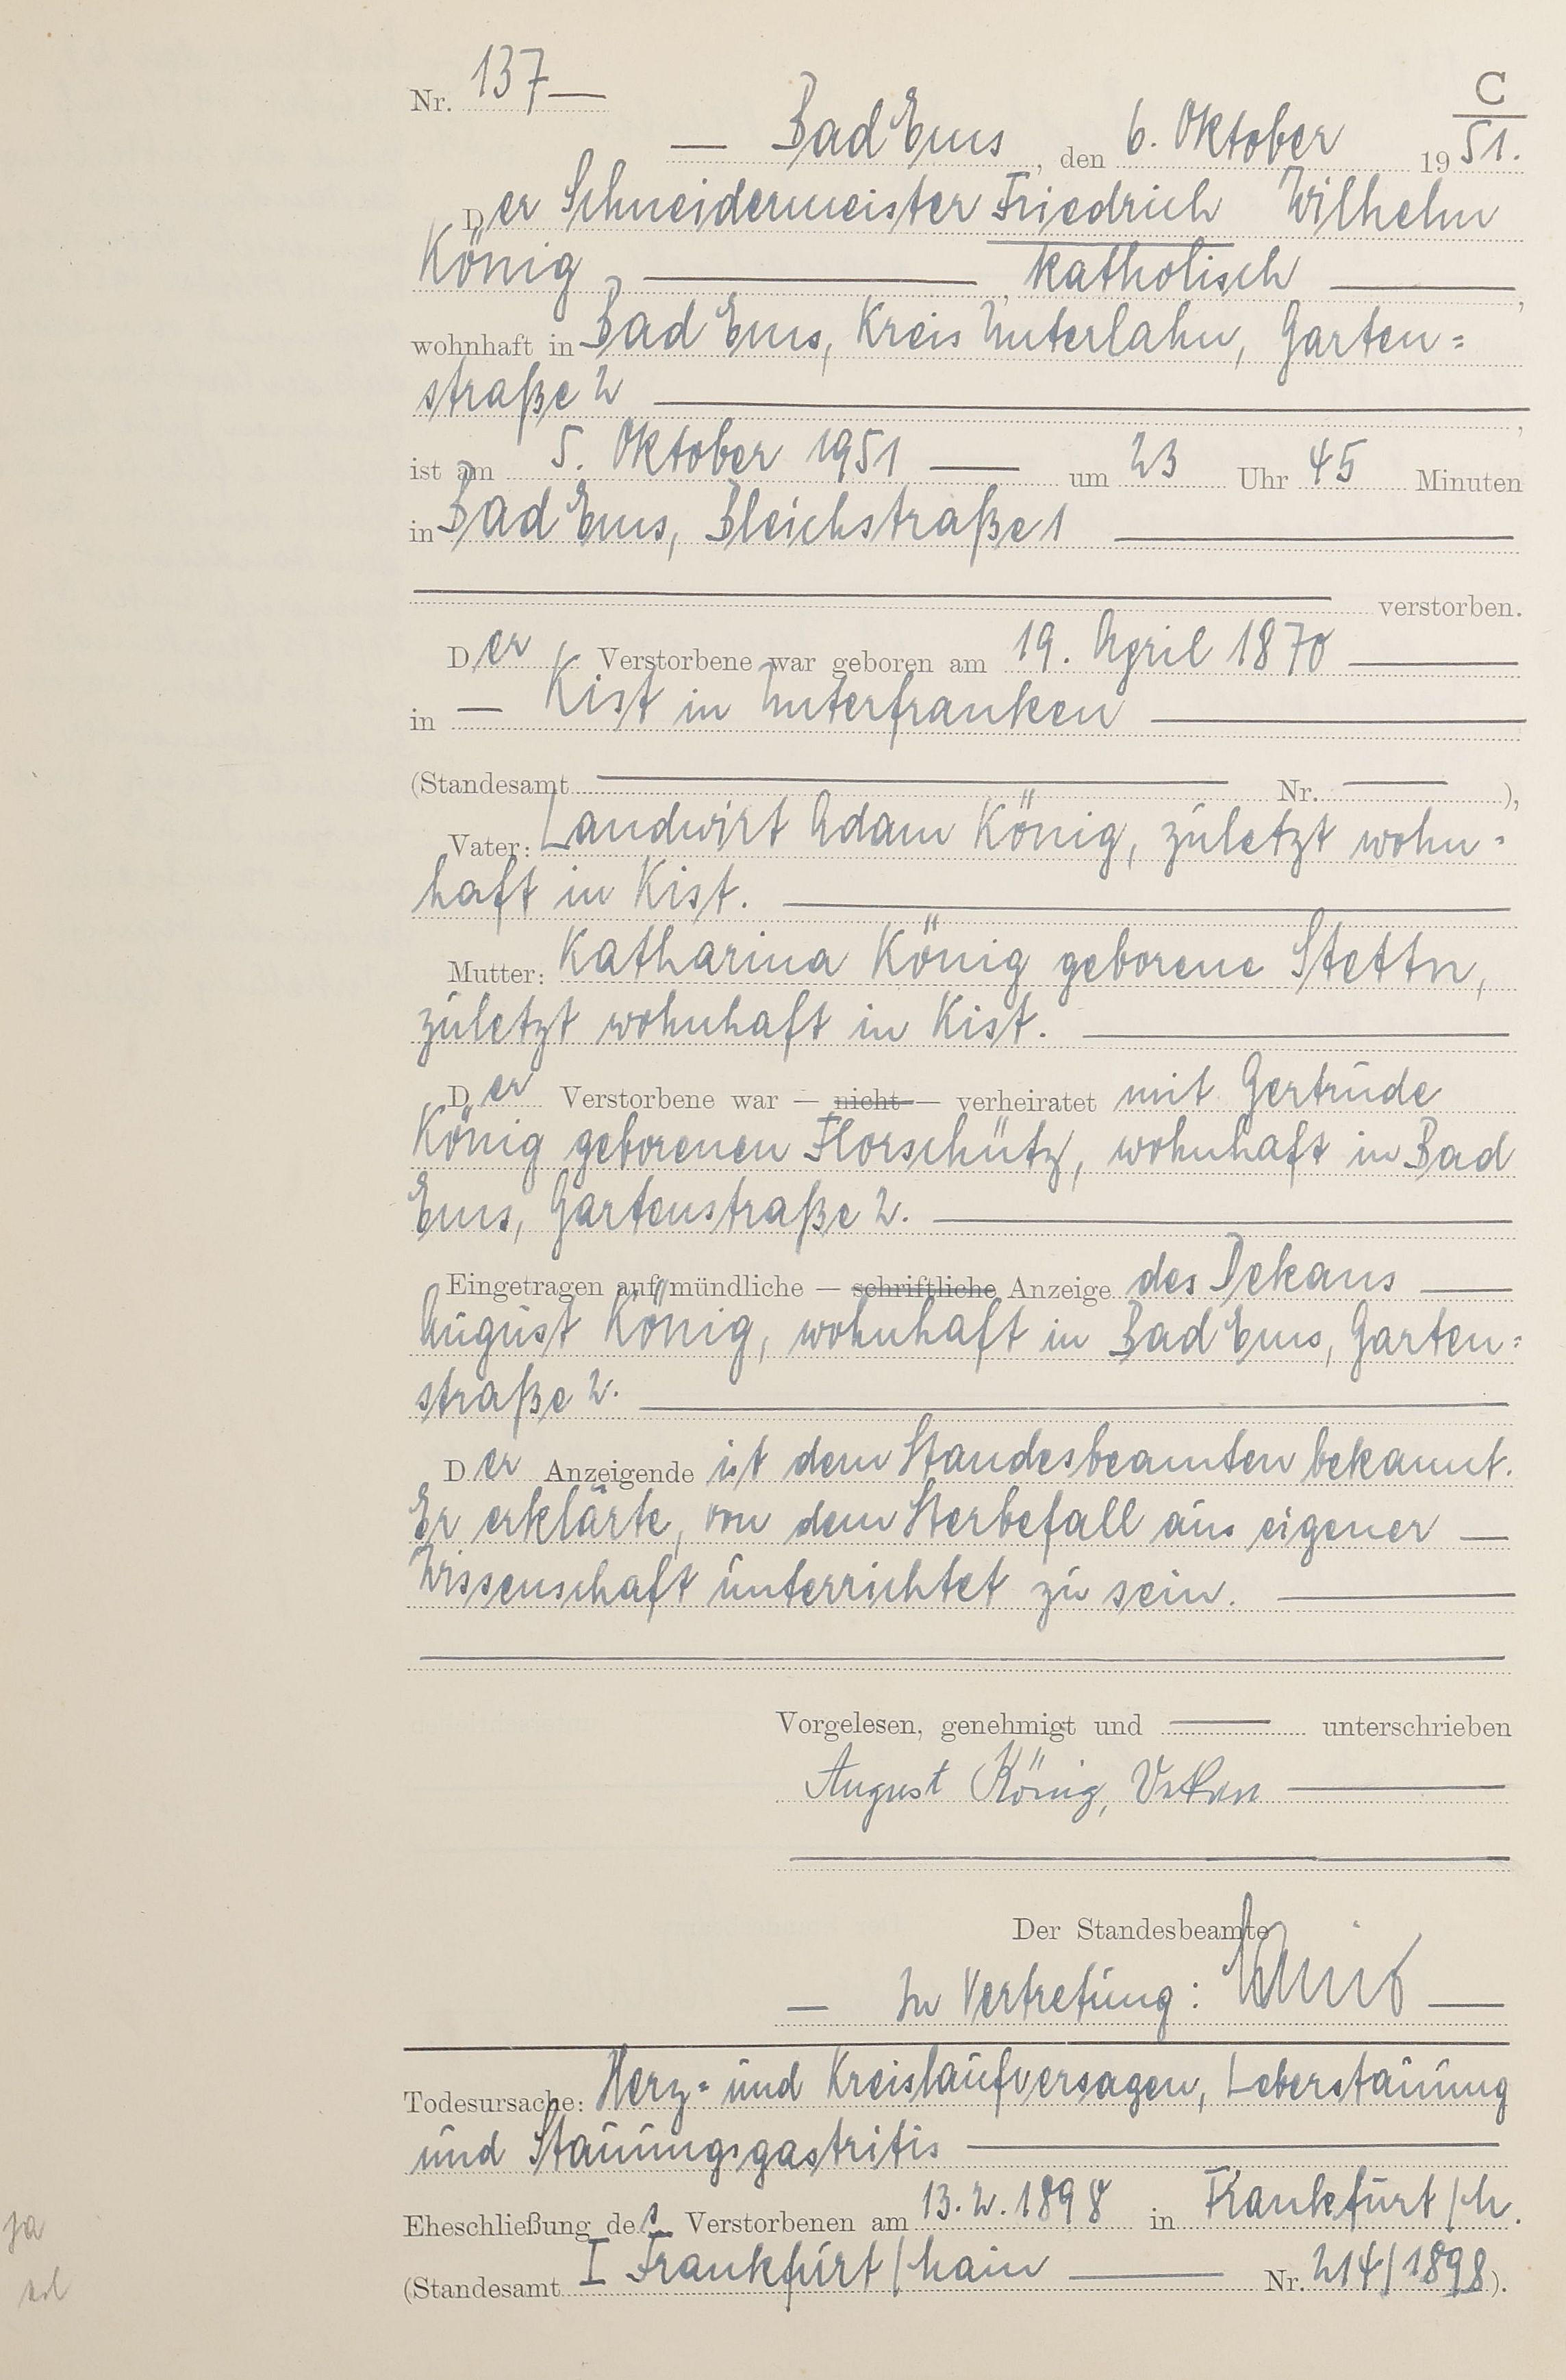 Nr. 137
C
Bad Ems, den 6. Oktober 1951.
Der Schneidermeister Friedrich Wilhelm
König, katholisch,
wohnhaft in Bad Ems, Kreis Unterlahn, Garten=
straße 2,
ist am 5. Oktober 1951 um 23 Uhr 45 Minuten
in Bad Ems, Bleichstraße 1
verstorben.
Der Verstorbene war geboren am 19. April 1870
in Kist in Unterfranken
(Standesamt Nr. ),
Vater: Landwirt Adam König, zuletzt wohn=
haft in Kist.
Mutter: Katharina König geborene
zuletzt wohnhaft in Kist.
Der Verstorbene war — nicht — verheiratet mit Gertrude
König geborenen Florschütz, wohnhaft in Bad
Ems, Gartenstraße 2.
Eingetragen auf mündliche — schriftliche Anzeige des Dekans
August König, wohnhaft in Bad Ems, Garten=
straße 2.
Der Anzeigende ist dem Standesbeamten bekannt.
Er erklärte, von dem Sterbefall aus eigener
Wissenschaft unterrichtet zu sein.
Vorgelesen, genehmigt und unterschrieben
August König, Dekan
Der Standesbeamte
In Vertretung:
Todesursache: Herz= und Kreislaufversagen, Leberstauung
und Stauungsgastritis
Eheschließung des Verstorbenen am 13.2.1898 in Frankfurt/M.
(Standesamt I Frankfurt/Main Nr. 214/1898).
ja